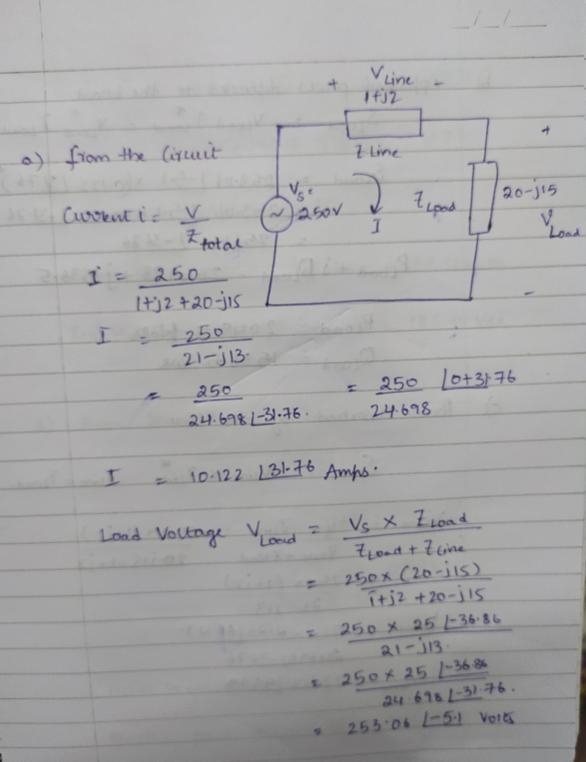 __/__/____
+ V Line -
1+j2
Z Line
a) from the Circuit
Vs=
~ 250V
I
Z Load
20-j15
+
V Load
-
Current i = V / Z total
I = 250 / 1+j2+20-j15
I = 250 / 21-j13.
= 250 / 24.698 ∠-31.76. = 250 / 24.698 ∠0+31.76
I = 10.122 ∠31.76 Amps.
Load Voltage V Load = Vs × Z Load / Z Load + Z Line
= 250×(20-j15) / 1+j2+20-j15
= 250 × 25 ∠-36.86 / 21-j13.
= 250 × 25 ∠-36.86 / 24.698 ∠-31.76.
= 253.06 ∠-5.1 Volts